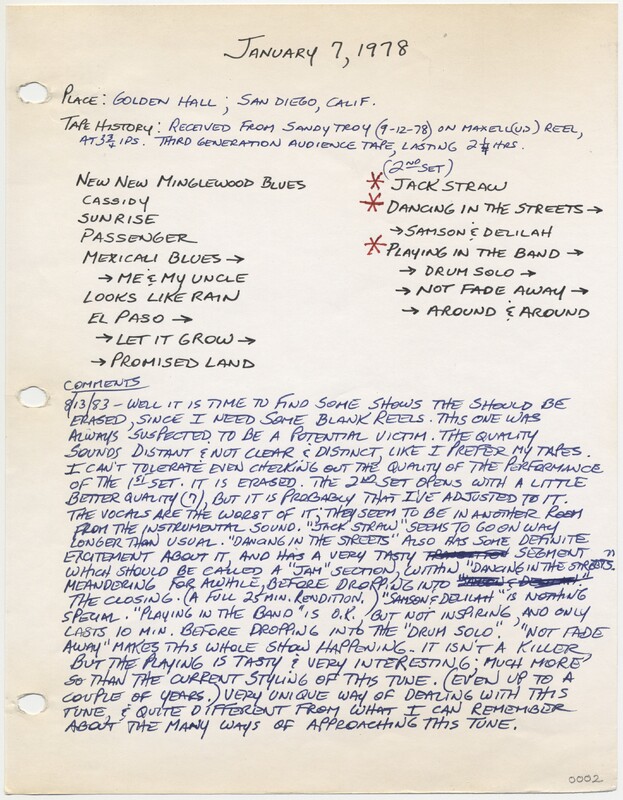 JANUARY 7, 1978
PLACE: GOLDEN HALL; SAN DIEGO, CALIF.
TAPE HISTORY: RECEIVED FROM SANDY TROY (9-12-78) ON MAXELL (U.D.) REEL,
AT 3¾ IPS. THIRD GENERATION AUDIENCE TAPE, LASTING 2¼ HRS.
NEW NEW MINGLEWOOD BLUES
CASSIDY
SUNRISE
PASSENGER
MEXICALI BLUES →
→ ME & MY UNCLE
LOOKS LIKE RAIN
EL PASO →
→ LET IT GROW →
→ PROMISED LAND
(2ND SET)
* JACK STRAW
* DANCING IN THE STREETS →
→ SAMSON & DELILAH
* PLAYING IN THE BAND →
→ DRUM SOLO →
→ NOT FADE AWAY →
→ AROUND & AROUND
COMMENTS
8/13/83 - WELL IT IS TIME TO FIND SOME SHOWS THE SHOULD BE
ERASED, SINCE I NEED SOME BLANK REELS. THIS ONE WAS
ALWAYS SUSPECTED, TO BE A POTENTIAL VICTIM. THE QUALITY
SOUNDS DISTANT & NOT CLEAR & DISTINCT, LIKE I PREFER MY TAPES.
I CAN'T TOLERATE EVEN CHECKING OUT THE QUALITY OF THE PERFORMANCE
OF THE 1ST SET. IT IS ERASED. THE 2ND SET OPENS WITH A LITTLE
BETTER QUALITY (7), BUT IT IS PROBABLY THAT I'VE ADJUSTED TO IT.
THE VOCALS ARE THE WORST OF IT; THEY SEEM TO BE IN ANOTHER ROOM
FROM THE INSTRUMENTAL SOUND. "JACK STRAW" SEEMS TO GO ON WAY
LONGER THAN USUAL. "DANCING IN THE STREETS" ALSO HAS SOME DEFINITE
EXCITEMENT ABOUT IT, AND HAS A VERY TASTY SEGMENT
WHICH SHOULD BE CALLED A "JAM" SECTION, WITHIN "DANCING IN THE STREETS."
MEANDERING FOR AWHILE, BEFORE DROPPING INTO
THE CLOSING. (A FULL 25 MIN. RENDITION.) "SAMSON & DELILAH" IS NOTHING
SPECIAL. "PLAYING IN THE BAND" IS O.K., BUT NOT INSPIRING, AND ONLY
LASTS 10 MIN. BEFORE DROPPING INTO THE "DRUM SOLO". "NOT FADE
AWAY" MAKES THIS WHOLE SHOW HAPPENING. IT ISN'T A KILLER,
BUT THE PLAYING IS TASTY & VERY INTERESTING; MUCH MORE
SO THAN THE CURRENT STYLING OF THIS TUNE. (EVEN UP TO A
COUPLE OF YEARS.) VERY UNIQUE WAY OF DEALING WITH THIS
TUNE, & QUITE DIFFERENT FROM WHAT I CAN REMEMBER
ABOUT THE MANY WAYS OF APPROACHING THIS TUNE.
0002